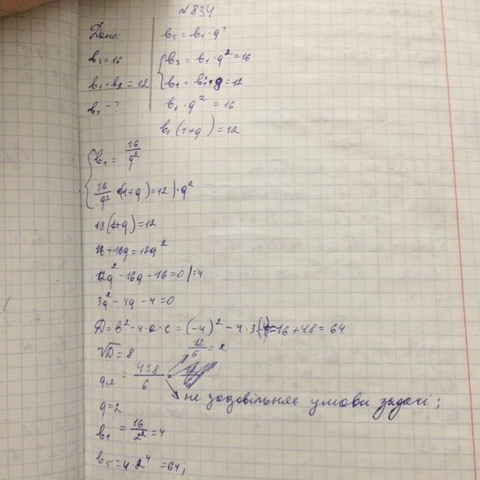 №834
Дано:
b₃ = 16
b₁ + b₂ = 12
b₅ - ?
b₅ = b₁ · q⁴
b₃ = b₁ · q² = 16
b₁ + b₁ · q = 12
b₁ · q² = 16
b₁(1+q) = 12
b₁ = 16/q²
16/q² · (1+q) = 12 | · q²
16(1+q) = 12
16 + 16q = 12q²
12q² - 16q - 16 = 0 | :4
3q² - 4q - 4 = 0
D = b² - 4·a·c = (-4)² - 4·3·(-4) = 16 + 48 = 64
√D = 8
12/6 = 2
q₁,₂ = 4±8/6
не задовільняє умови задачі;
q = 2
b₁ = 16/2² = 4
b₅ = 4·2⁴ = 64;